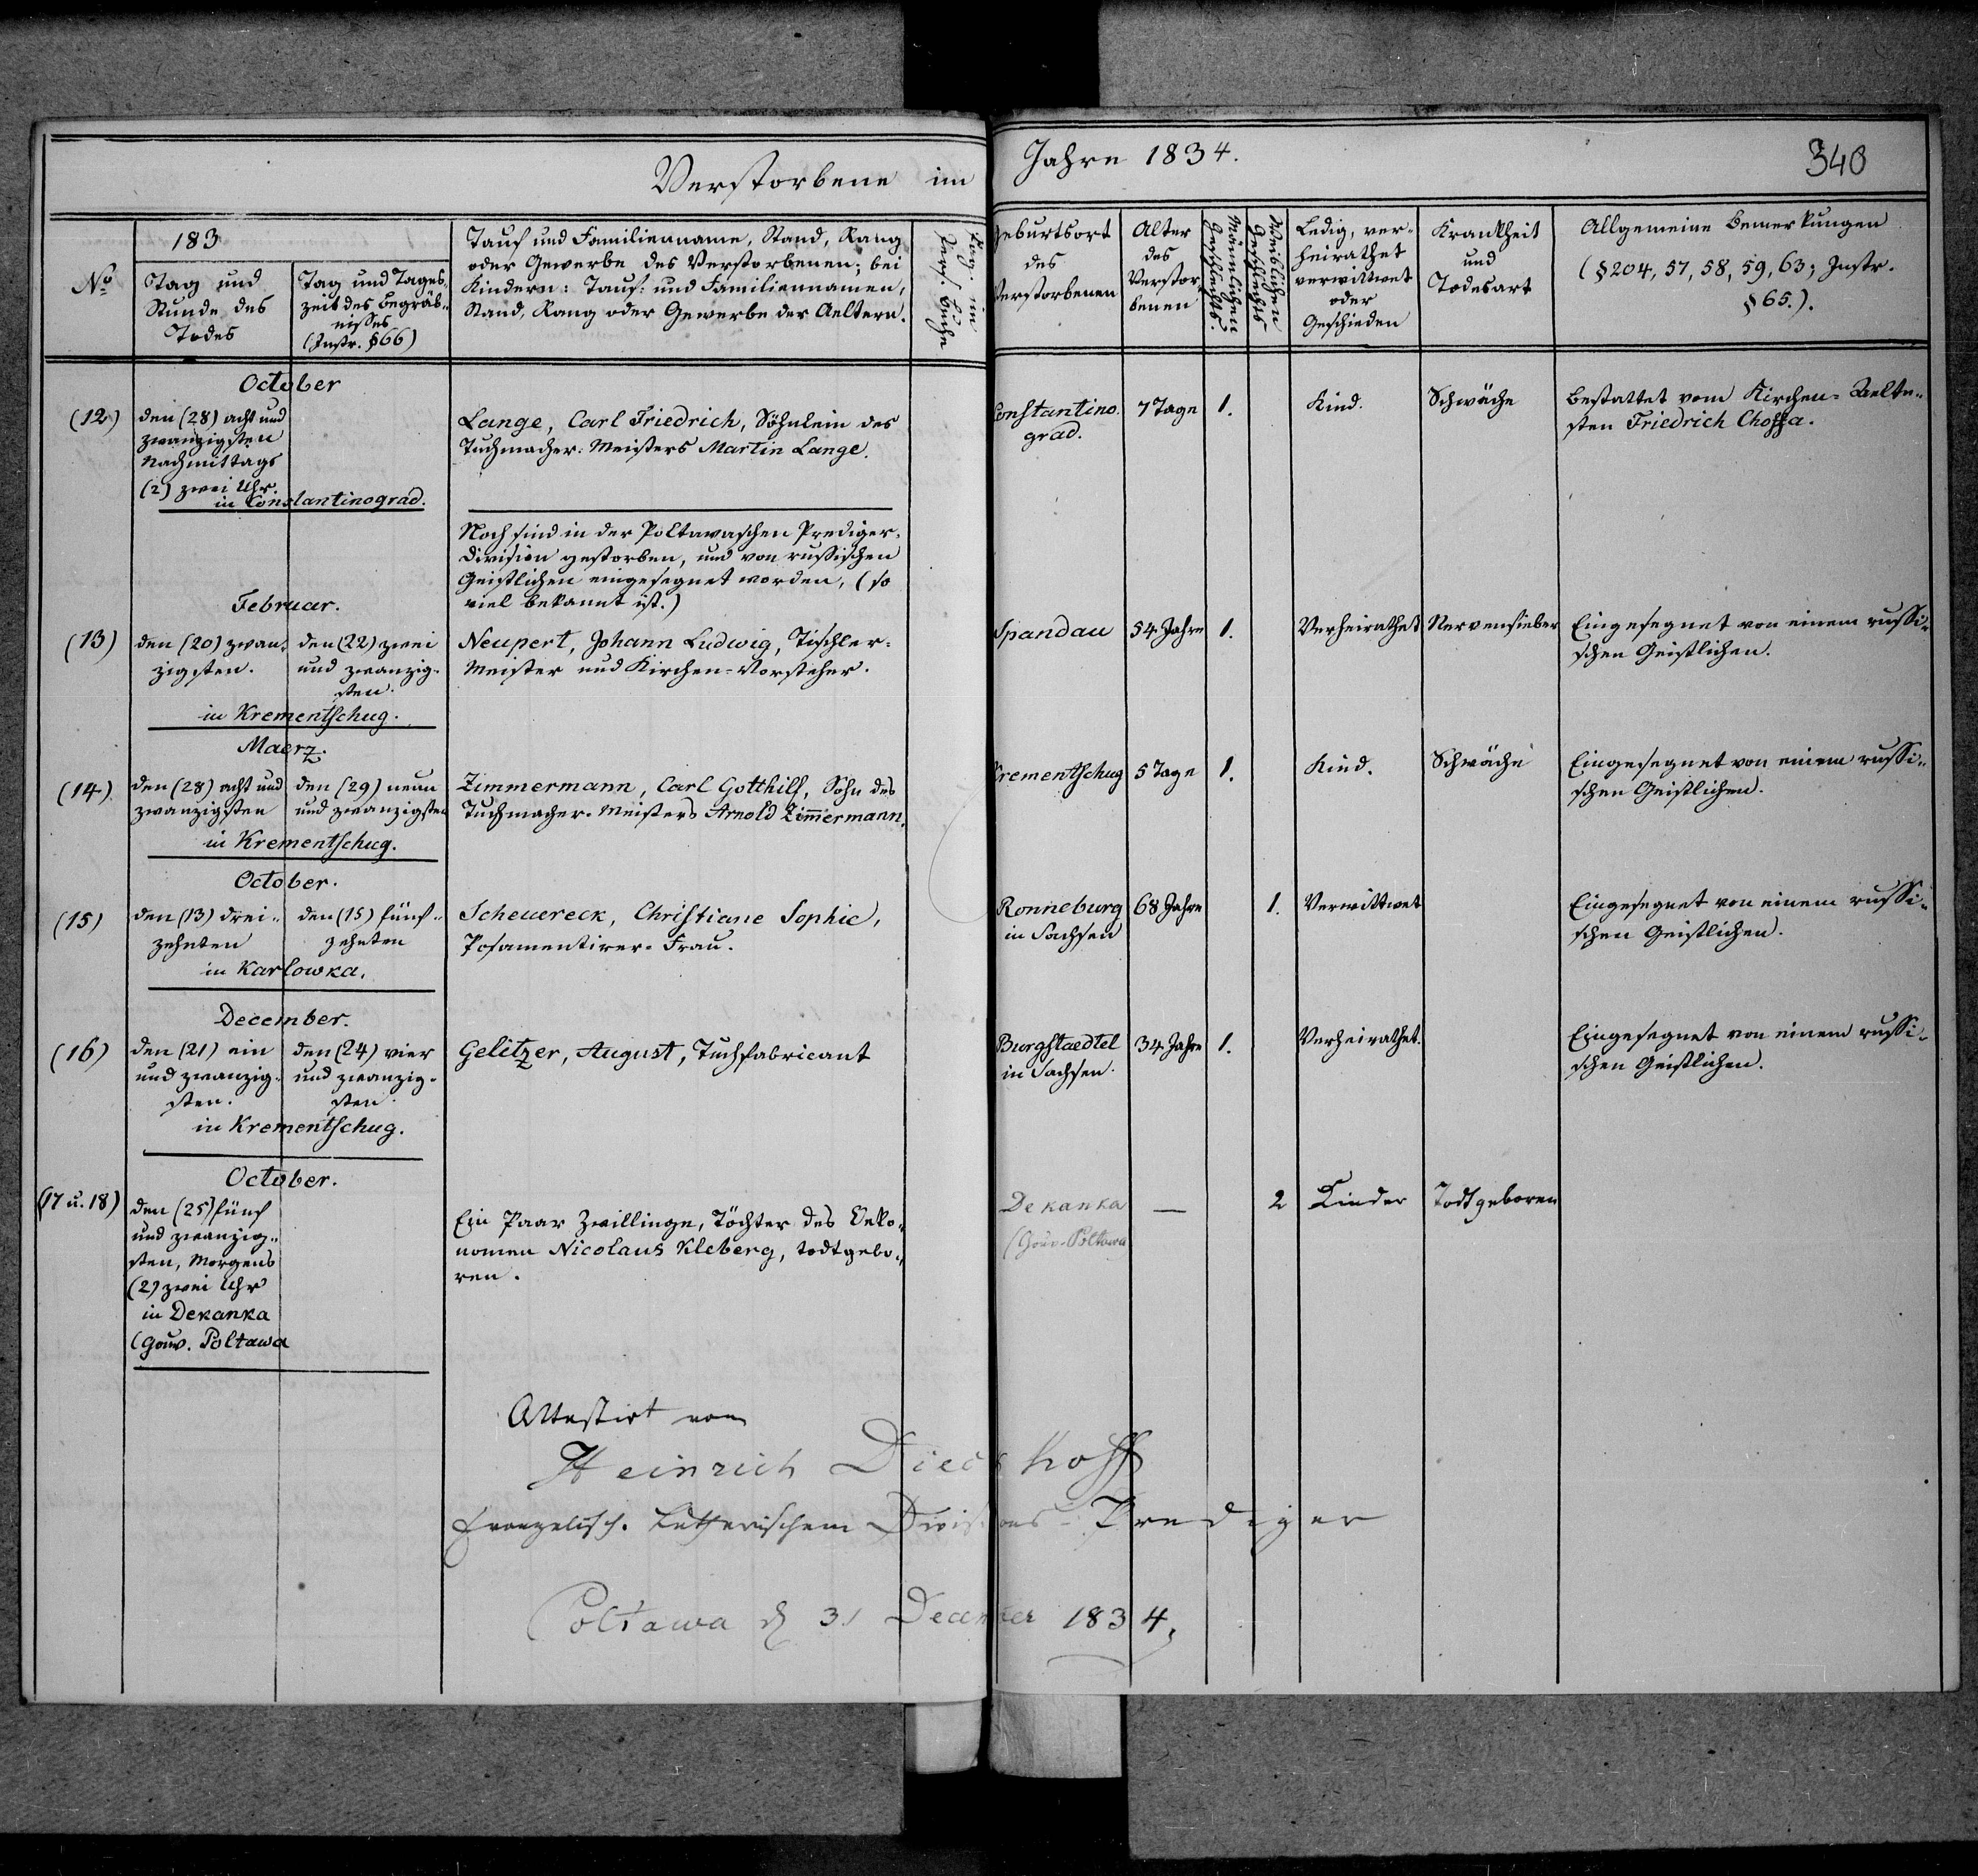 Verstorbene im Jahre 1834.
340
No
183
Tag und
Stunde des
Todes
Tag und Tages-
zeit des Begräb-
nisses
(Instr. §66)
Tauf und Familienname, Stand, Rang
oder Gewerbe des Verstorbenen; bei
Kindern: Tauf- und Familiennamen,
Stand, Rang oder Gewerbe der Aeltern.
Geburtsort
des
Verstorbenen
Alter
des
Verstor-
benen
Männlichen
Geschlechts.
Weiblichen
Geschlechts
Ledig, ver-
heirathet
verwittwet
oder
Geschieden
Krankheit
und
Todesart
Allgemeine Bemerkungen
(§204, 57, 58, 59, 63; Instr.
§65.).
October
(12)
den (28) acht und
zwanzigsten
Nachmittags
(2) zwei Uhr.
in Constantinograd.
Lange, Carl Friedrich, Söhnlein des
Tuchmacher-Meisters Martin Lange.
Constantino-
grad.
7 Tage
1.
Kind.
Schwäche
Bestattet vom Kirchen-Aelte-
sten Friedrich
Noch sind in der Poltawaschen Prediger-
Division gestorben, und von russischen
Geistlichen eingesegnet worden, (so
viel bekannt ist.)
Februar.
(13)
den (20) zwan-
zigsten.
den (22) zwei
und zwanzig-
sten.
in Krementschug.
Neupert, Johann Ludwig, Tischler-
Meister und Kirchen-Vorsteher.
Spandau
54 Jahre
1.
Verheirathet
Nervenfieber
Eingesegnet von einem russi-
schen Geistlichen.
Maerz.
(14)
den (28) acht und
zwanzigsten
den (29) neun
und zwanzigsten
in Krementschug.
Zimmermann, Carl Gotthilf, Sohn des
Tuchmacher-Meisters Arnold Zim̄ermann.
Krementschug
5 Tage
1.
Kind.
Schwäche
Eingesegnet von einem russi-
schen Geistlichen.
October.
(15)
den (13) drei-
zehnten
den (15) fünf-
zehnten
in Karlowka.
Scheuereck, Christiane Sophie,
Posamentirer-Frau.
Ronneburg
in Sachsen
68 Jahre
1.
Verwittwet
Eingesegnet von einem russi-
schen Geistlichen.
December.
(16)
den (21) ein
und zwanzig-
sten.
den (24) vier
und zwanzig-
sten.
in Krementschug.
Gelitzer, August, Tuchfabricant
Burgstaedtel
in Sachsen.
34 Jahre
1.
Verheirathet.
Eingesegnet von einem russi-
schen Geistlichen.
October.
(17 u. 18)
den (25) fünf
und zwanzig-
sten, Morgens
(2) zwei Uhr
in Dekanka
(Gouv. Poltawa
Ein Paar Zwillinge, Töchter des Oeko-
nomen Nicolaus Kleberg, todtgebo-
ren.
Dekanka
(Gouv. Poltawa
—
2
Kinder
Todtgeboren
Attestirt von
Heinrich Dieckhoff
Evangelisch-Lutherischem Divisions-Prediger
Poltawa d 31 December 1834.